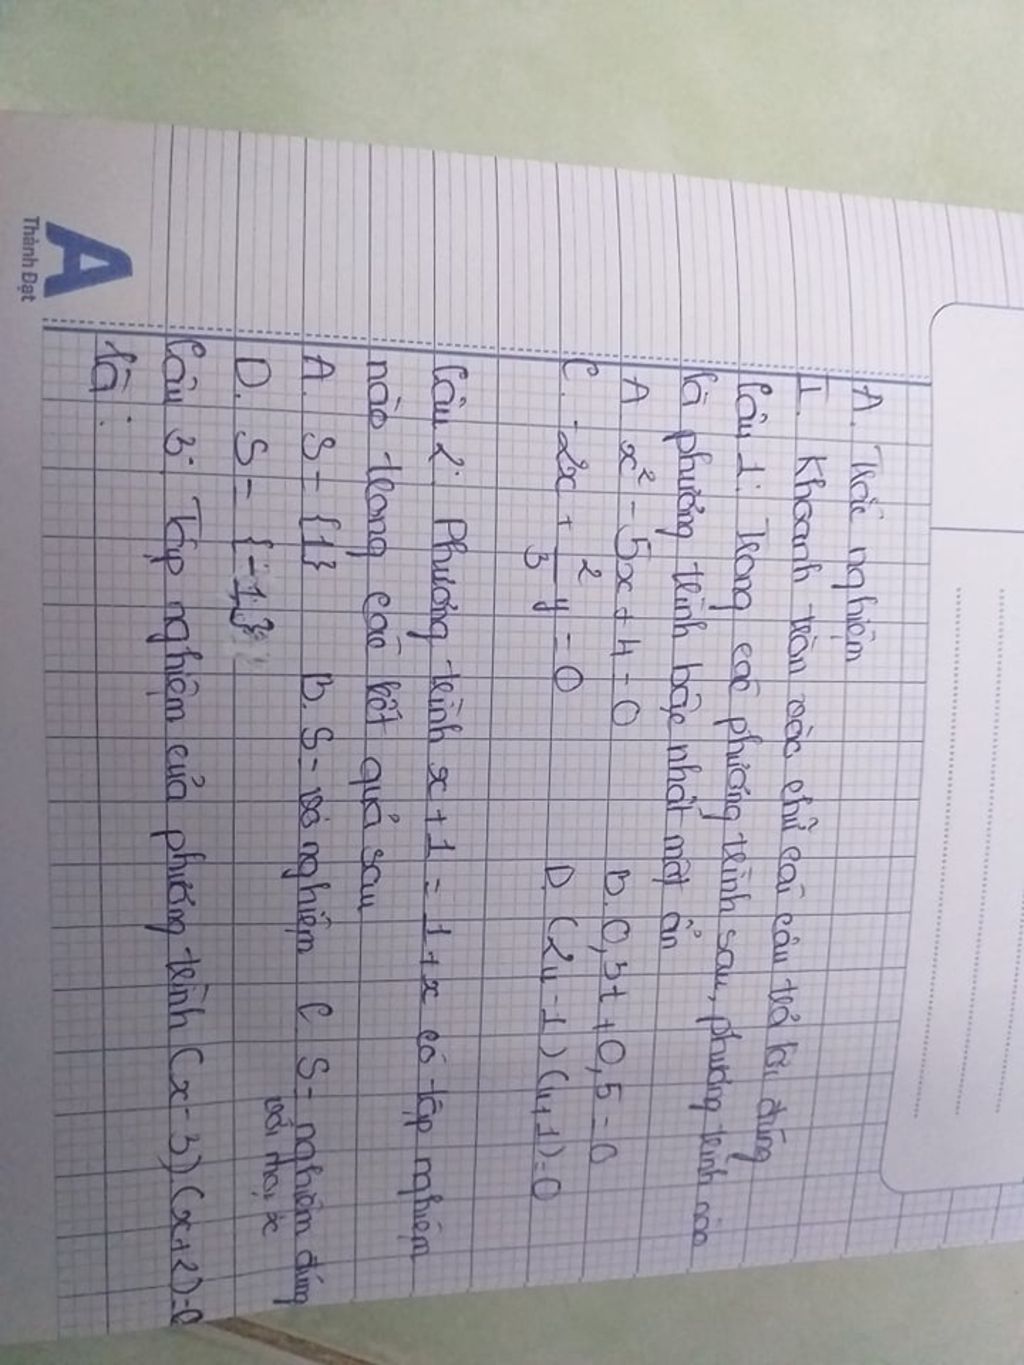 A. Trắc nghiệm
I. Khoanh tròn vào chữ cái câu trả lời đúng
Câu 1: Trong các phương trình sau, phương trình nào
là phương trình bậc nhất một ẩn
A x² - 5x + 4 = 0 B. 0,3t + 0,5 = 0
C. -2x + 2/3 y = 0 D (2u - 1)(u+1)=0
Câu 2: Phương trình x + 1 = 1 + x có tập nghiệm
nào trong các kết quả sau
A. S = {1} B. S = vô nghiệm C S = nghiệm đúng
với mọi x
D. S = {-1;3}
Câu 3: Tập nghiệm của phương trình (x - 3)(x+2)=0
là:
A
Thành Đạt